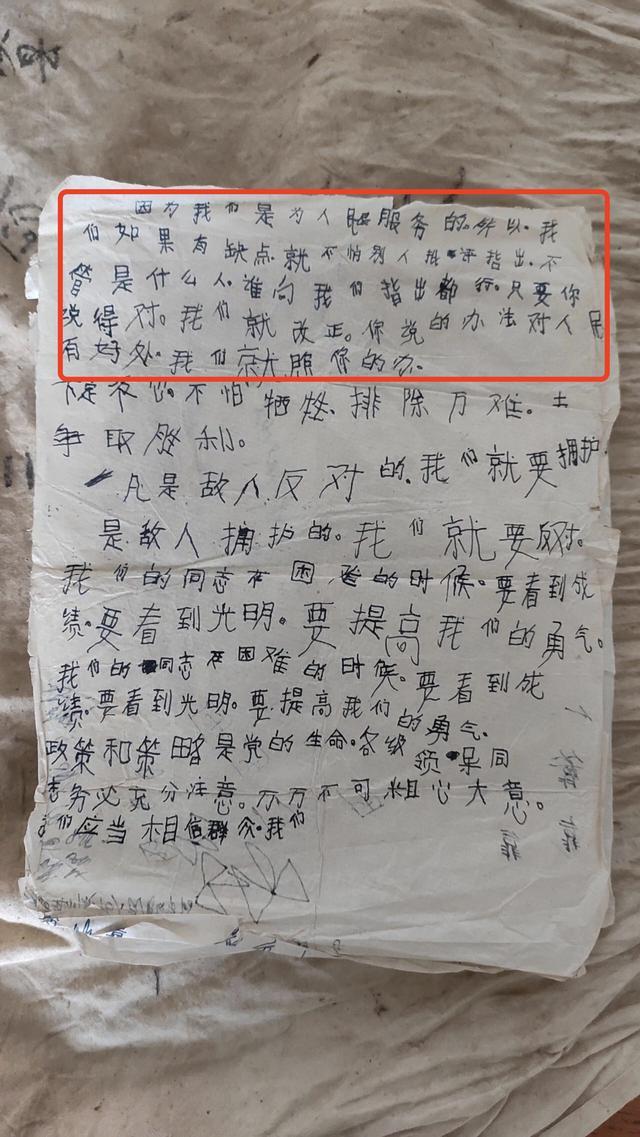 因为我们是为人民服务的.所以.我
们如果有缺点.就不怕别人批评指出.不
管是什么人.谁向我们指出都行.只要你
说得对。我们就改正。你说的办法对人民
有好处.我们就照你的办.
下定决心.不怕牺牲.排除万难.去
争取胜利。
凡是敌人反对的.我们就要拥护.
是敌人拥护的。我们就要反对.
我们的同志在困难的时候.要看到成
绩。要看到光明。要提高我们的勇气。
我们的同志在困难的时候。要看到成
绩.要看到光明。要提高我们的勇气.
政策和策略是党的生命.各级领导同
志务必充分注意。万万不可粗心大意。
我们应当相信群众.我们